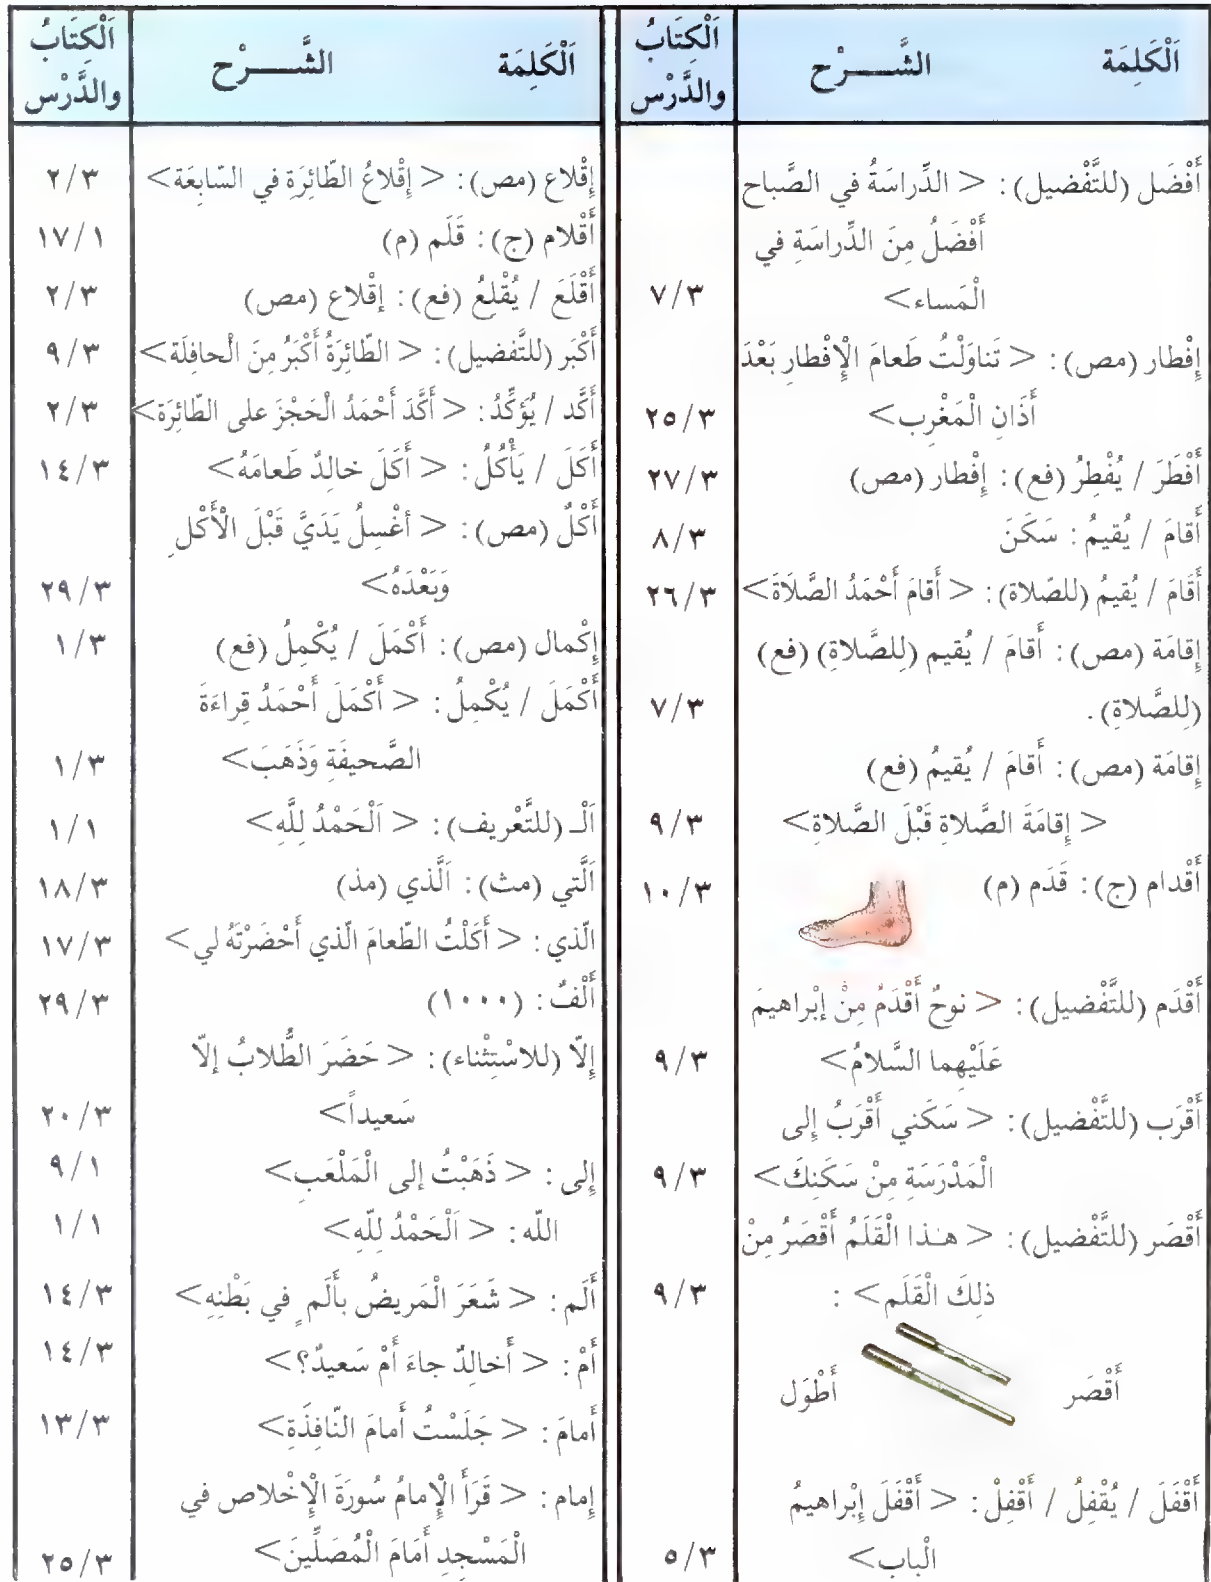 اَلْكَلِمَة الشَّـــرْح اَلْكِتَابُ والدَّرْس
أَفْضَل (للتَّفْضيل) : < الدِّراسَةُ في الصَّباح
أَفْضَلُ مِنَ الدِّراسَةِ في
الْمَساء> ٧/٣
إِفْطار (مص) : < تَناوَلْتُ طَعامَ الْإِفْطارِ بَعْدَ
أَذَانِ الْمَغْرِب> ٢٥/٣
أَفْطَرَ / يُفْطِرُ (فع) : إِفْطار (مص) ٢٧/٣
أَقامَ / يُقيمُ : سَكَنَ ٨/٣
أَقَامَ / يُقيمُ (للصّلاة) : < أَقامَ أَحْمَدُ الصَّلَاةَ> ٢٦/٣
إِقامَة (مص) : أَقامَ / يُقيم (لِلصَّلاةِ) (فع)
(لِلصَّلاةِ) . ٧/٣
إِقامَة (مص) : أَقامَ / يُقيمُ (فع)
< إِقامَةَ الصَّلاةِ قَبْلَ الصَّلاةِ> ٩/٣
أَقْدام (ج) : قَدَم (م) ١٠/٣
أَقْدَم (للتَّفْضيل) : < نوحٌ أَقْدَمُ مِنْ إِبْراهيمَ
عَلَيْهِما السَّلامُ> ٩/٣
أَقْرَب (للتَّفْضيل) : < سَكَني أَقْرَبُ إِلى
الْمَدْرَسَةِ مِنْ سَكَنِكَ> ٩/٣
أَقْصَر (للتَّفْضيل) : < هـٰذا الْقَلَمُ أَقْصَرُ مِنْ
ذلِكَ الْقَلَم> : ٩/٣
أَقْصَر أَطْوَل
أَقْفَلَ / يُقْفِلُ / أَقْفِلْ : < أَقْفَلَ إِبْراهيمُ
الْباب> ٥/٣
اَلْكَلِمَة الشَّـــرْح اَلْكِتَابُ والدَّرْس
إِقْلاع (مص) : < إِقْلاعُ الطّائِرَةِ في السّابِعَة> ٢/٣
أَقْلام (ج) : قَلَم (م) ١٧/١
أَقْلَعَ / يُقْلِعُ (فع) : إقْلاع (مص) ٢/٣
أَكْبَر (للتَّفضيل) : < الطّائِرَةُ أَكْبَرُ مِنَ الْحافِلَة> ٩/٣
أَكَّد / يُؤَكِّدُ : < أَكَّدَ أَحْمَدُ الْحَجْزَ على الطّائِرَة> ٢/٣
أَكَلَ / يَأْكُلُ : < أَكَلَ خالِدٌ طَعامَهُ> ١٤/٣
أَكْلٌ (مص) : < أغْسِلُ يَدَيَّ قَبْلَ الْأَكْلِ
وَبَعْدَهُ> ٢٩/٣
إِكْمال (مص) : أَكْمَلَ / يُكْمِلُ (فع) ١/٣
أَكْمَلَ / يُكْمِلُ : < أَكْمَلَ أَحْمَدُ قِراءَةَ
الصَّحيفَةِ وَذَهَبَ> ١/٣
اَلْـ (للتَّعْريف) : < اَلْحَمْدُ لِلَّهِ> ١/١
اَلَّتي (مث) : اَلَّذي (مذ) ١٨/٣
الّذي : < أَكَلْتُ الطّعامَ الّذي أَحْضَرْتَهُ لي> ١٧/٣
أَلْفٌ : (١٠٠٠) ٢٩/٣
إِلّا (للاسْتِثْناء) : < حَضَرَ الطُّلابُ إلّا
سَعيداً> ٢٠/٣
إِلى : < ذَهَبْتُ إلى الْمَلْعَبِ> ٩/١
اللّه : < اَلْحَمْدُ لِلّهِ> ١/١
أَلَم : < شَعَرَ الْمَريضُ بأَلَمٍ في بَطْنِهِ> ١٤/٣
أَمْ : < أَخالِدٌ جاءَ أَمْ سَعيدٌ؟> ١٤/٣
أَمامَ : < جَلَسْتُ أَمامَ النّافِذَةِ> ١٣/٣
إِمام : < قَرَأَ الْإِمامُ سُورَةَ الْإِخْلاص في
الْمَسْجِدِ أَمَامَ الْمُصَلِّينَ> ٢٥/٣